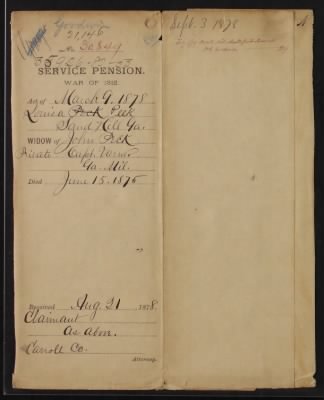 Goodwin
21,146
No 30844
SERVICE PENSION.
WAR OF 1812.
Act of March 9, 1878
Louisa Peck Peek
Sand Hill Ga.
WIDOW of John Peek
Private Capt. Varner
Ga. Mil.
Died June 15. 1875
Received Aug 21 1878.
Claimant
As above.
Carroll Co.
Attorney.
Sept. 3 1878